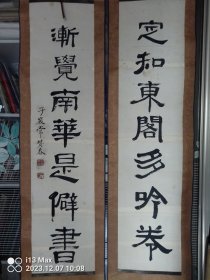 定知東閣多吟券
漸覺南華是僻書
i13 Max
2023.12.07 10:08